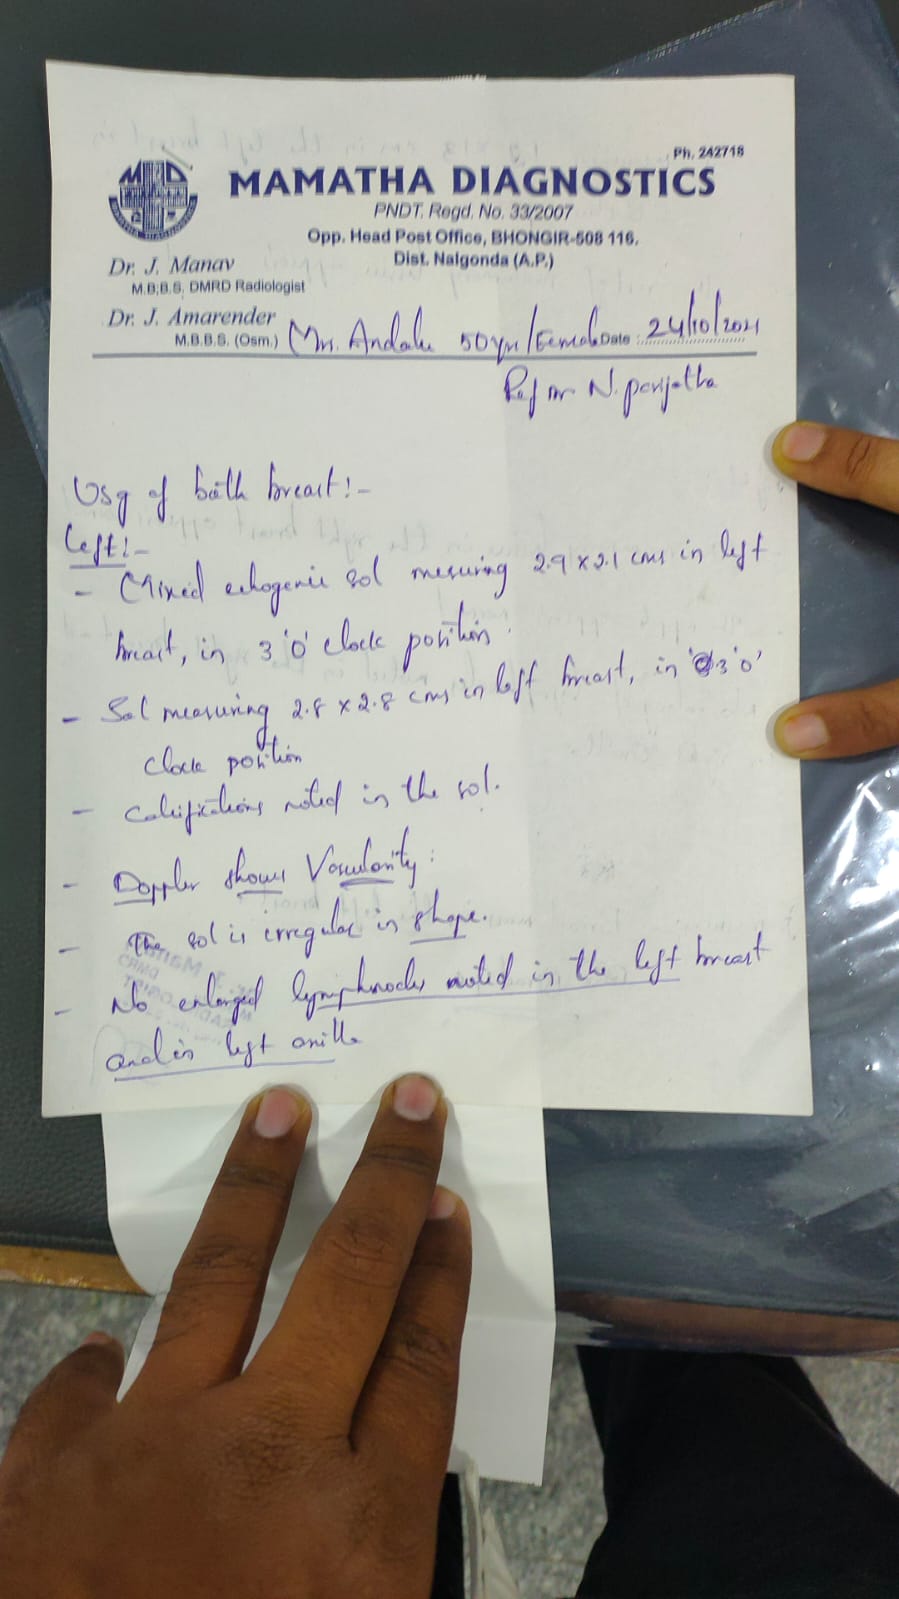 Ph. 242718
MAMATHA DIAGNOSTICS
PNDT. Regd. No. 33/2007
Opp. Head Post Office, BHONGIR-508 116.
Dist. Nalgonda (A.P.)
Dr. J. Manav
M.B;B.S, DMRD Radiologist
Dr. J. Amarender
M.B.B.S. (Osm.)
50yrs/Female Date : 24/10/2021
Ref Dr N.
Usg of both breast:-
Left:-
- Mixed echogenic sol mesuring 2.9 x 2.1 cms in left
breast, in 3 'o' clock position.
- Sol measuring 2.8 x 2.8 cms in left breast, in 3 'o'
clock position
- calcifications noted in the sol.
- Doppler shows Vascularity.
- The sol is irregular in shape.
- No enlarged lymphnodes noted in the left breast
and in left axilla